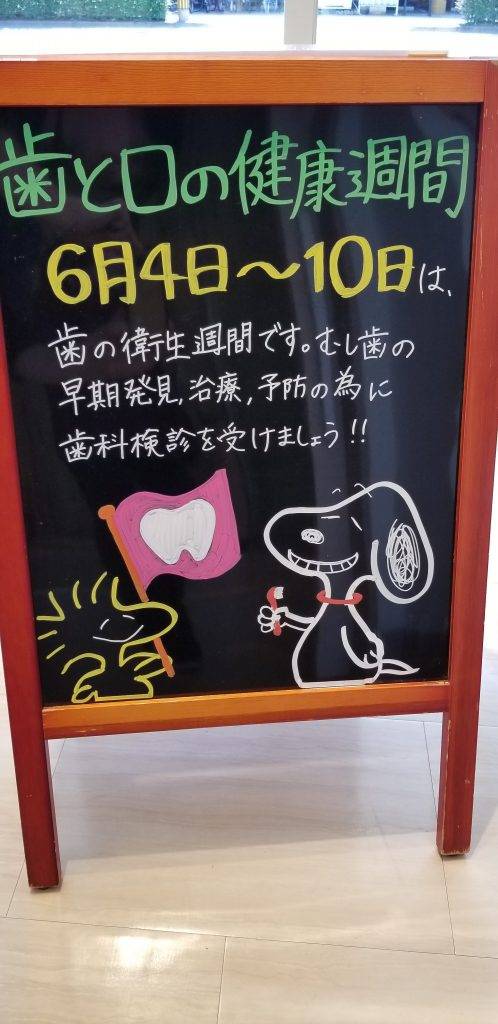 歯と口の健康週間
6月4日〜10日は、
歯の衛生週間です。むし歯の
早期発見,治療,予防の為に
歯科検診を受けましょう!!